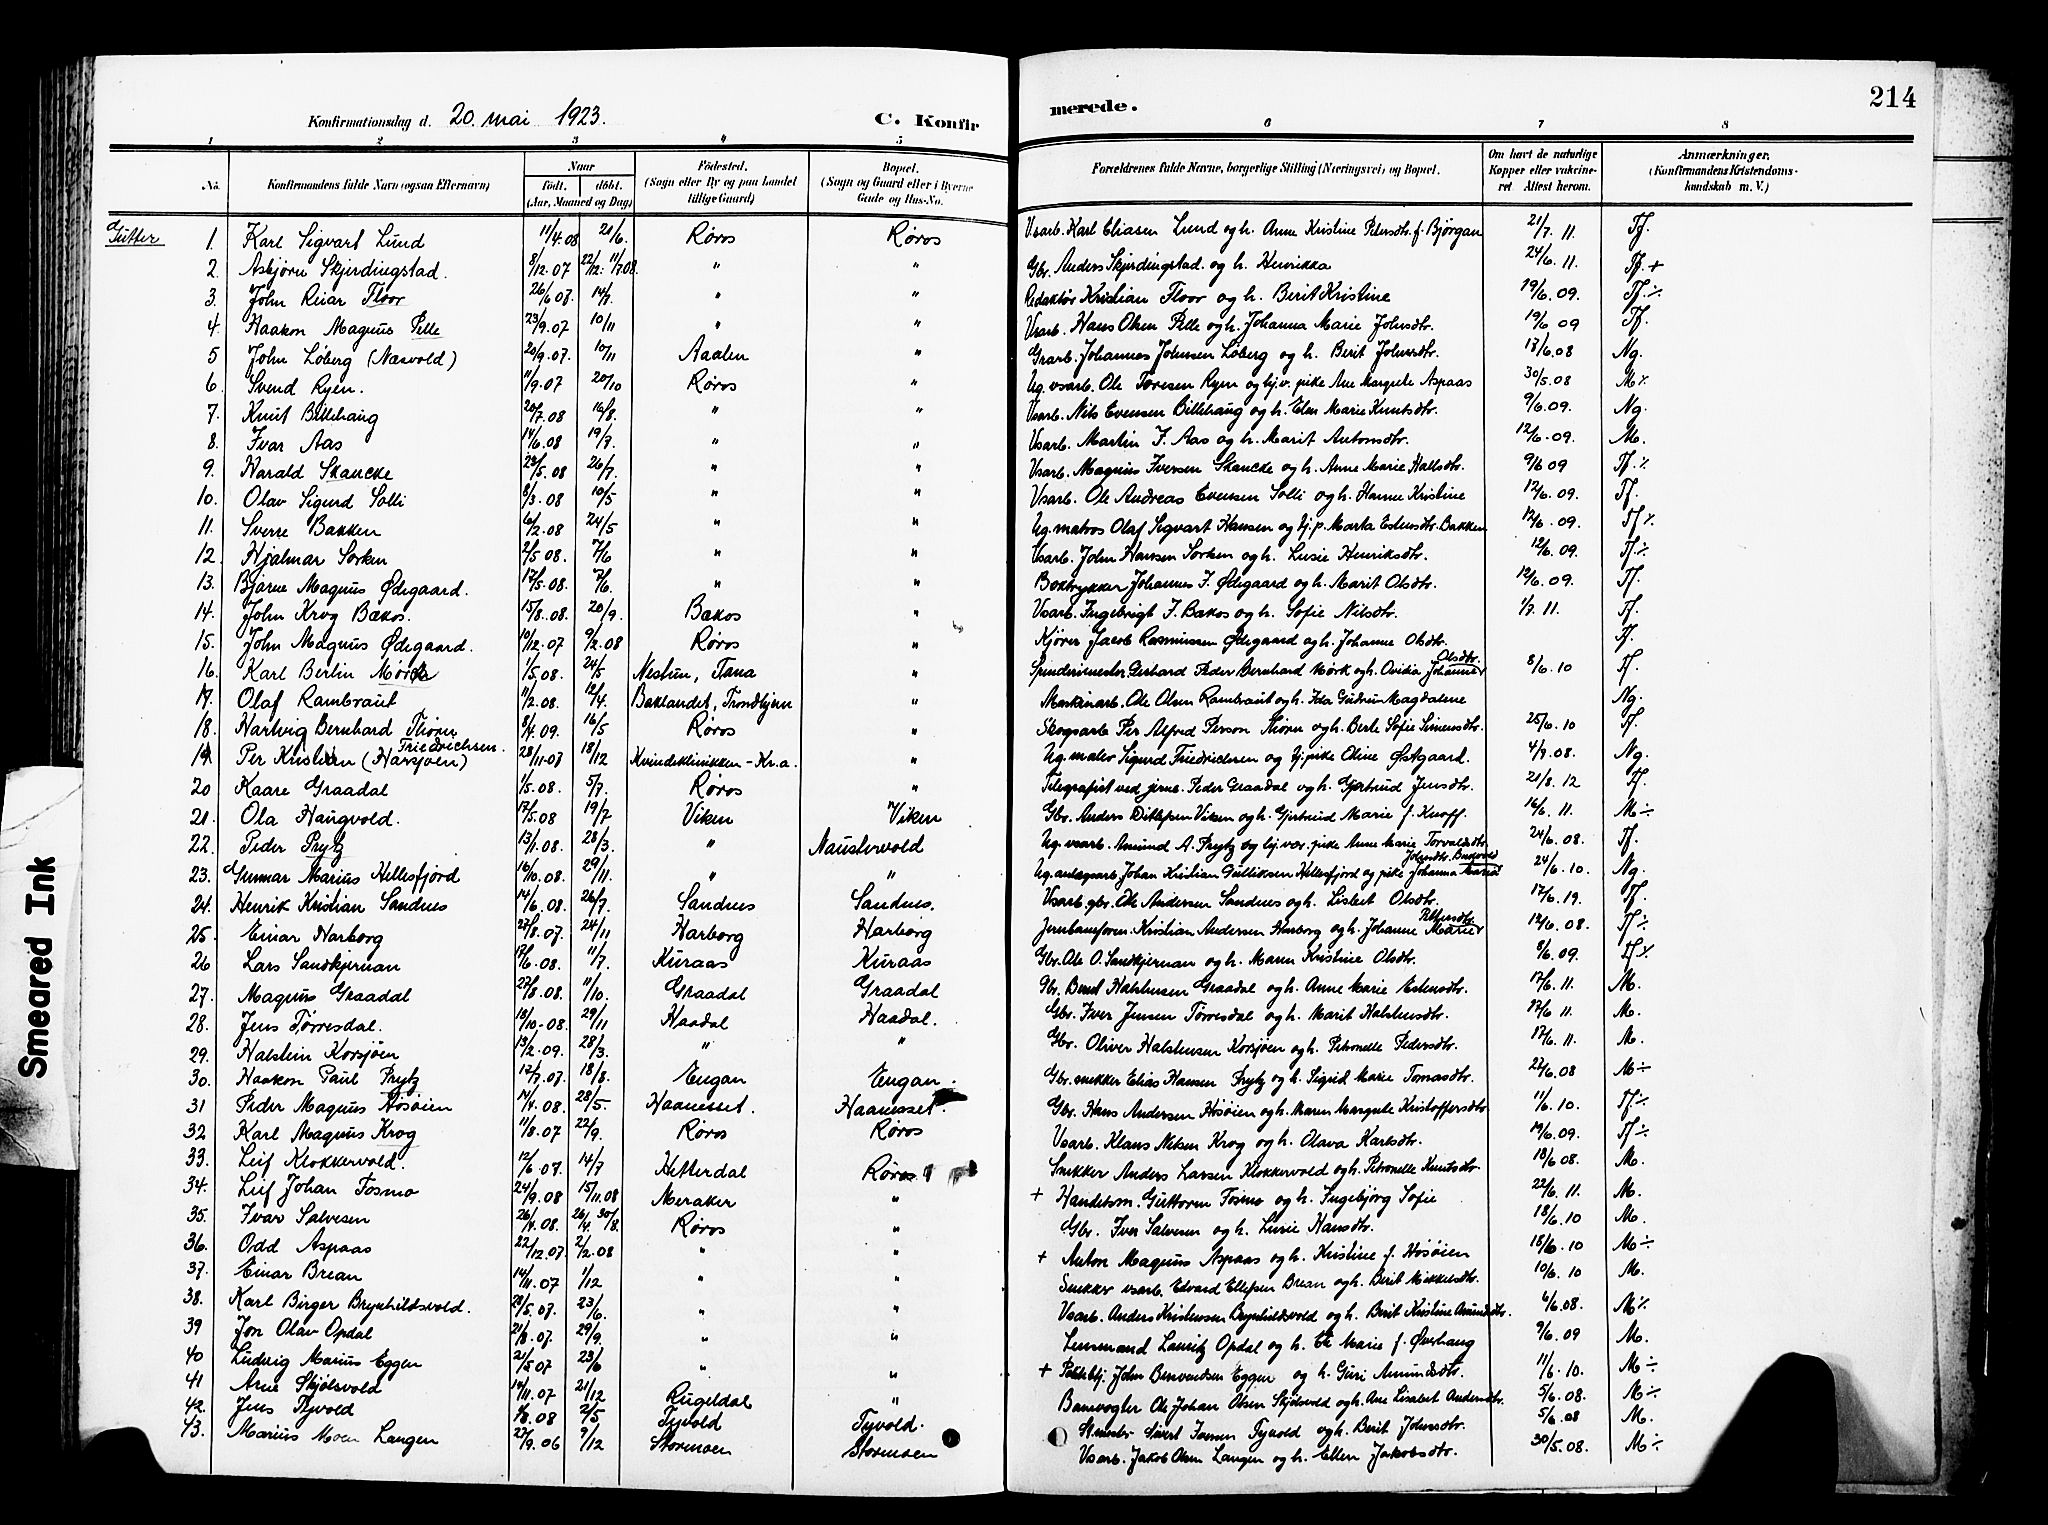 214
Konfirmationsdag d. 20. mai 1923. C. Konfirmerede.
1 2 3 4 5 6 7 8
No. Konfirmandens fulde Navn (ogsaa Efternavn) Naar født. døbt. (Aar, Maaned og Dag) Fødested. (Sogn eller By og paa Landet tillige Gaard) Bopæl. (Sogn og Gaard eller i Byerne Gade og Hus-No. Forældrenes fulde Navne, borgerlige Stilling (Næringsvei) og Bopæl. Om havt de naturlige Kopper eller vakcineret. Attest herom. Anmærkninger. (Konfirmandens Kristendomskundskab m. V.)
Gutter
1. Karl Sigvart Lund 11/4.08 21/6. Røros Røros Vsarb. Karl Eliasen Lund og h. Anne Kristine Petersdtr. f. Bjørgan 21/7. 11. Tf.
2. Asbjørn Skjerdingstad. 8/12.07 22/12. 11/7 08. " " Gbr. Anders Skjerdingstad og h. Henrikka 24/6. 11. Tf. +
3. John Reiar Floor 26/6 07. 14/7. " " Redaktør Kristian Floor og h. Berit Kristine 19/6. 09. Tf. ÷
4. Haakon Magnus Pelle 23/9.07 10/11 " " Vsarb. Hans Olsen Pelle og h. Johanna Marie Johnsdtr. 19/6 09 Tf.
5 John Løberg (Næsvold) 20/9.07. 10/11 Aalen " Grarb. Johannes Johnsen Løberg og h. Berit Johnsdtr. 13/6.08 Ng.
6. Svend Ryen. 11/9.07 20/10 Røros " Ug. vsarb. Ole Toresen Ryen og tj.v. pike Ane Margrete Aspaas 30/5.08 M ٪
7. Knut Billehaug 20/7.08 16/8. " " Vsarb. Nils Evensen Billehaug og h. Elen Marie Knutsdtr. 9/6.09. Ng.
8. Ivar Aas 14/6.08 19/7. " " Vsarb. Martin I. Aas og h. Marit Antonsdtr. 12/6.09. M.
9. Harald Skancke 23/5.08 26/7. " " Vsarb. Magnus Iversen Skancke og h. Anne Marie Hallsdtr. 9/6 09 Tf. ٪
10. Olav Sigurd Solli 8/3.08 10/5 " " Vsarb. Ole Andreas Evensen Solli og h. Hanne Kristine 12/6.09. Tf.
11. Sverre Bakken 6/2.08 24/5 " " Ug. matros Olaf Sigvart Hansen og tj.p. Marta Estensdtr. Bakken 12/6.09. Tf ٪
12. Hjalmar Sorken 2/5 08. 7/6 " " Vsarb. John Hansen Sorken og h. Lusie Henriksdtr. 12/6.09. Tf. ٪
13. Bjarne Magnus Ødegaard. 17/5.08. 7/6. " " Boktrykker Johannes I. Ødegaard og h. Marit Olsdtr. 12/6.09. Tf.
14. John Krog Bækos. 15/8.08. 20/9. Bækos " Vsarb. Ingebrigt I. Bækos og h. Sofie Nilsdtr. 1/7. 11. Tf.
15. John Magnus Ødegaard. 10/12.07 9/2.08 Røros " Kjører Jacob Rasmussen Ødegaard og h. Johanne Olsdtr. Tf.
16. Karl Berlin Mørk 1/5.08. 24/5 Nestun, Fana " Spinderimester Gerhard Peder Bernhard Mørk og h. Ovidia Johanne Olsdtr. 8/6.10 Tf.
17. Olaf Rambraut 11/2.08. 12/4. Baklandet, Trondhjem " Maskinarb. Ole Olsen Rambraut og h. Ida Gudrun Magdalene Ng.
18. Hartvig Bernhard Thorn 8/4.09. 16/5 Røros " Skogsarb Per Alfred Person Thorn og h. Berte Sofie Simensdtr. 25/6.10 Tf.
19 Per Kristian (Harsjøen) Friedrichsen. 28/11.07 18/12 Kvindeklinikken - Kr.a. " Ug. maler Sigurd Friedrichsen og tj. pike Oline Østgaard. 4/9.08. Ng.
20 Kaare Graadal 1/5.08. 5/7. Røros " Telegrafist ved jrnb. Peder Graadal og h. Gjertrud Jensdtr. 21/8. 12 Tf.
21. Ola Haugvold. 17/5.08 19/7 Viken Viken Gbr. Anders Ditlefsen Viken og h. Gjertrud Marie f. Knoff. 16/6. 11. M ÷
22. Peder Prytz 13/1.08. 28/3. " Naustervold Ug. vsarb. Amund A. Prytz og tj. vær. pike Anne Marie Torvaldsdtr. 24/6.08. Tf.
23. Gunnar Marius Hellesfjord 16/10.08. 29/11. " " Ug. anlægsarb. Johan Kristian Gulliksen Hellesfjord og pike Johanna Maria 24/6.10. Ng.
24. Henrik Kristian Sandnes 14/6.08. 26/7. Sandnes Sandnes. Vsarb. gbr. Ole Andersen Sandnes og h. Lisbet Olsdtr. 17/6.19. Tf.
25. Einar Harborg 27/8.07. 24/11 Harborg Harborg Jernbaneform. Kristian Andersen Harborg og h. Johanne Marie 12/6.08. Tf. ÷
26 Lars Sandkjernan 17/6.08. 11/7. Kuraas Kuraas Gbr. Ole O. Sandkjernan og h. Maren Kristine Olsdtr. 8/6.09. Tf. ٪
27. Magnus Graadal 27/8.08. 11/10. Graadal Graadal Gbr. Bent Halstensen Graadal og h. Anne Marie Estensdtr. 17/6. 11. M.
28. Jens Tørresdal. 18/10.08. 29/11 Haadal Haadal. Gbr. Iver Jensen Tørresdal og h. Marit Halstensdtr. 17/6 11. M.
29. Halstein Korsjøen 13/2.09. 28/3. " " Gbr. Oliver Halstensen Korsjøen og h. Petronelle Pedersdtr. 17/6. 11. M.
30. Haakon Paul Prytz 17/7.07. 18/8. Engan Engan. Gbr. snekker Elias Hansen Prytz og h. Sigrid Marie Tomasdtr. 22/6.08 M ÷
31 Peder Magnus Høsøien 14/4.08. 28/5. Haanesset. Haanesset. Gbr. Hans Andersen Høsøien og h. Maren Margrete Kristoffersdtr. 11/6. 10. Tf. ÷
32 Karl Magnus Krog 11/8.07 22/9. Røros Røros Vsarb. Klaus Nilsen Krog og h. Olava Karlsdtr. 19/6.09. Tf. ÷
33. Leif Klokkervold. 12/6.07. 14/7 Hitterdal Røros Snekker Anders Larsen Klokkervold og h. Petronelle Knutsdtr. 18/6 08. M.
34. Leif Johan Fosmo 24/9.08 15/11.08 Meraker " + Handelsm. Guttorm Fosmo og h. Ingebjørg Sofie 22/6. 11. M.
35. Ivar Salvesen 26/4.08. 26/4. 30/8. Røros " Gbr. Iver Salvesen og h. Lusie Hansdtr. 18/6.10 M.
36. Odd Aspaas 22/12.07 2/2.08 " " + Anton Magnus Aspaas og h. Kristine f. Høsøien 18/6.10 M ÷
37. Einar Brean 14/11.07 1/12 " " Snekker vsarb. Edvard Ellefsen Brean og h. Berit Mikkelsdtr. 10/6. 10 M.
38. Karl Birger Brynhildsvold. 20/5.07. 23/6. " " Vsarb. Anders Kristensen Brynhildsvold og h. Berit Kristine Amundsdtr. 6/6.08. M ٪
39 Jon Olav Opdal 21/8.07. 29/9. " " Lensmand Lauritz Opdal og h. Marie f. Øverhaug 9/6.09 M.
40 Ludvig Marius Eggen 21/5 07 23/6 " " + John Bersvendsen Eggen og h. Guri Amundsdtr. 11/6. 10. M ÷
41 Arne Skjølsvold 14/11.07 21/12 Rugeldal " Banevogter Ole Johan Olsen Skjølsvold og h. Ane Lisabet Andersdtr. 5/6.08. M ÷
42. Jens Tyvold 4/3.08 2/5 Tyvold Tyvold. Sivert Iversen Tyvold og h. Berit Johnsdtr. 5/6.08 M.
43. Marius Moen Langen 27/9.06 9/12 Stormoen Stormoen Vsarb. Jakob Olsen Langen og h. Ellen Jakobsdtr. 30/5.08. M ÷
Smeared Ink